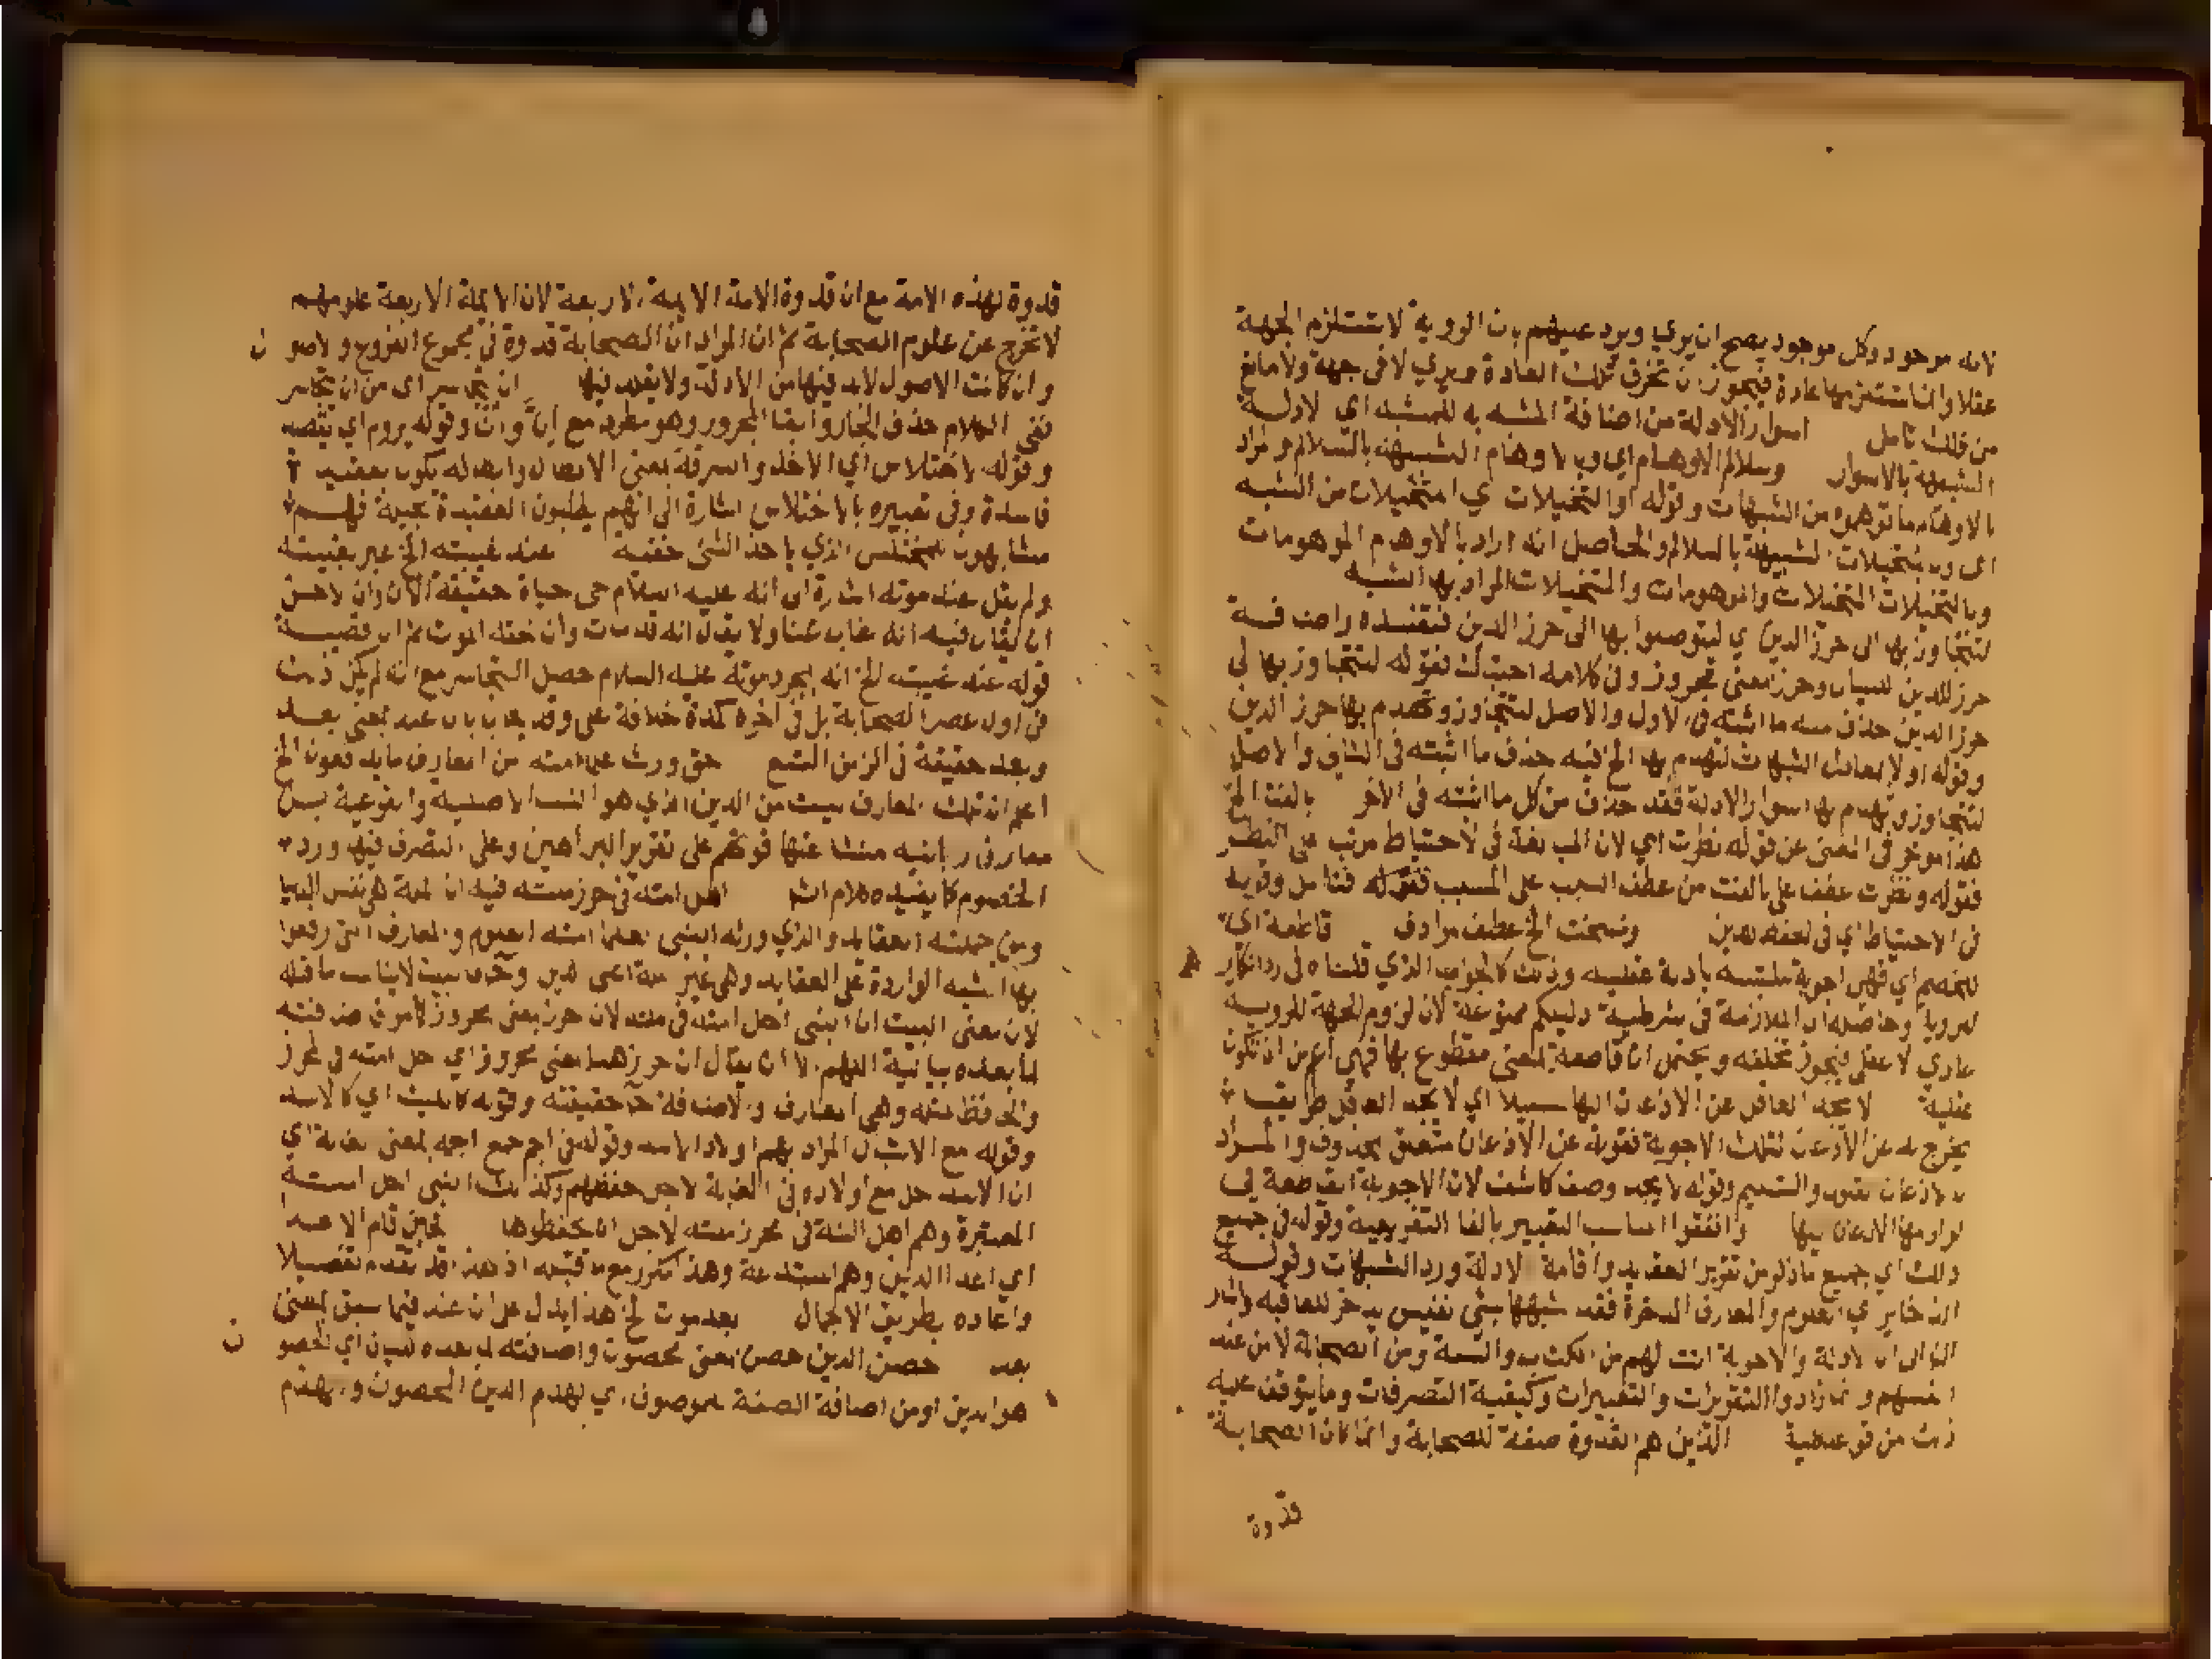 لانه موجود وكل موجود يصح ان يري ويرد عليهم بان الروية لا تستلزم الجهة
عقلا وانما تستلزمها عادة فيجوز ان تخرق تلك العادة ويري لا في جهة ولا مانع
من ذلك تامل اسوار الادلة من اضافة المشبه به للمشبه اي الادلة
الشبيهة بالاسوار وسلالم الاوهام اي وبالاوهام الشبيهة بالسلالم والمراد
بالاوهام ما توهموه من الشبهات وقوله او التخيلات اي المتخيلات من الشبه
اي وبالتخيلات الشبيهة بالسلالم والحاصل انه اراد بالاوهام الموهومات
وبالتخيلات المتخيلات والموهومات والمتخيلات المراد بها الشبه
لتتجاوز بها الى حرز الدين اي ليتوصلوا بها الى حرز الدين فتفسده واضافة
حرز للدين للبيان وحرز بمعنى محروز وفي كلامه احتباك فقوله لتتجاوز بها الى
حرز الدين حذف منه ما اثبته في الاول والاصل لتتجاوز وتهدم بها حرز الدين
وقوله اولا الشبهات لتهدم بها الخ فيه حذف ما اثبته في الثاني والاصل
لتتجاوز وتهدم بها اسوار الادلة فقد حذف من كل ما اثبته في الاخر بالغت الخ
هذا موخر في المعنى عن قوله نظرت اي لان المبالغة في الاحتياط مرتب على النظر
فقوله ونظرت عطف على بالغت من عطف السبب على المسبب فقوله فتامل وقوله
في الاحتياط اي في لحفظ الدين ونصحت الخ عطف مرادف قاطعة اي
للخصم اي فهي اجوبة ملتبسة بادلة عقلية وذلك كالجواب الذي قلناه في رد انكار
الروية وحاصله ان الملازمة في شرطية دليلكم ممنوعة لان لزوم الجهة للروية
عادي لا عقلي فيجوز تخلفه ويحتمل ان قاطعة بمعنى مقطوع بها فهي اعم من ان تكون
عقلية لا يجد العاقل عن الاذعان اليها سبيلا اي لا يجد العاقل طريقا
يخرج به عن الاذعان لتلك الاجوبة فقوله عن الاذعان متعلق بمحذوف والمراد
بالاذعان القبول والتسليم وقوله لا يجد وصف كاشف لان الاجوبة القاطعة في
لوازمها الاذعان اليها واتفقوا المناسب التعبير بالفا التفريعية وقوله في جميع
ذلك اي جميع ما ذكر من تقرير العقايد واقامة الادلة ورد الشبهات وقوله
الذخاير اي العلوم والمعارف المدخرة فقد شبهها بشي نفيس يدخر للعاقبة واشار
الى ان الادلة والاجوبة اتت لهم من الكتاب والسنة ومن الصحابة لا من عند
انفسهم وانما زادوا التقريرات والتغييرات وكيفية التصرفات وما يتوقف عليه
ذلك من قوعدهية الذين هم القدوة صفة للصحابة وانما كان الصحابة
قدوة
قدوة لهذه الامة مع ان قدوة الامة الايمة الاربعة لان الايمة الاربعة علومهم
لا تخرج عن علوم الصحابة ثم ان المراد ان الصحابة قدوة في مجموع الفروع والاصول
وان كانت الاصول لابد فيها من الادلة ولا يقلد فيها ان يتجاسر اي من ان يتجاسر
ففي الكلام حذف الجار وابقا المجرور وهو مطرد مع ان وان وقوله يروم اي يقصد
وقوله لاختلاس اي الاخذ والسرقة بمعنى الابطال وابطاله يكون بعقيدة
فاسدة وفي تعبيره بالاختلاس اشارة الى انهم يطلبون العقيدة بحيلة فهم
مشابهون للمختلس الذي ياخذ الشي خفية عند غيبته الخ عبر بغيبته
ولم يقل عند موته اشارة الى انه عليه السلام حي حياة حقيقة الان وان الاحسن
ان يقال فيه انه غاب عنا ولا يقال انه قد مات وان لحقه الموت ثم ان قضية
قوله عند غيبته الخ انه بمجرد موته عليه السلام حصل التجاسر مع انه لم يكن ذلك
في اول عصر الصحابة بل في اخره كمدة خلافة علي وقد يجاب بان عند بمعنى بعد
وبعد حقيقة في الزمن المتسع حتى ورث علما امته من المعارف ما يدفعون الخ
اعلم ان تلك المعارف ليست من الدين الذي هو النسب الاصلية والفرعية بل
معارف ربانية منشا عنها قوتهم على تقرير البراهين وعلى التصرف فيها ورد
الخصوم كما يفيده كلام الش احل امته في حرز ملته فيه ان الملة هي نفس الدين
ومن جملته العقايد والذي ورثه النبي علما امته العلوم والمعارف التي رفعوا
بها الشبه الواردة على العقايد وهي غير الملة اعني الدين وحينئذ البيت لا يناسب ما قبله
لان معنى البيت ان النبي احل امته في ملته لان حرز بمعنى محروز كما مر فاضافته
لما بعده بيانية اللهم الا ان يقال ان حرز هنا بمعنى محرز اي حل امته في المحرز
والحافظ لملته وهي المعارف والاضافة ح حقيقية وقوله كالليث اي كالاسد
وقوله مع الاشبال المراد بهم اولاد الاسد وقوله في اجم جمع اجمة بمعنى الغابة اي
ان الاسد حل مع اولاده في الغابة لاجل حفظهم وكذلك النبي احل امته
المعتبرة وهم اهل السنة في محرز ملته لاجل ان يحفظوها فحين قام الاعدا
اي اعدا الدين وهم المبتدعة وهذا مكرر مع ما قبله اذ هذا قد تقدم تفصيلا
واعاده بطريق الاجمال بعد موت الخ هذا يدل على ان عند فيما سبق بمعنى
بعد حصن الدين حصن بمعنى محصون واضافته لما بعده للبيان اي المحصون
هو الدين او من اضافة الصفة للموصوف اي لهدم الدين المحصون ويهدم